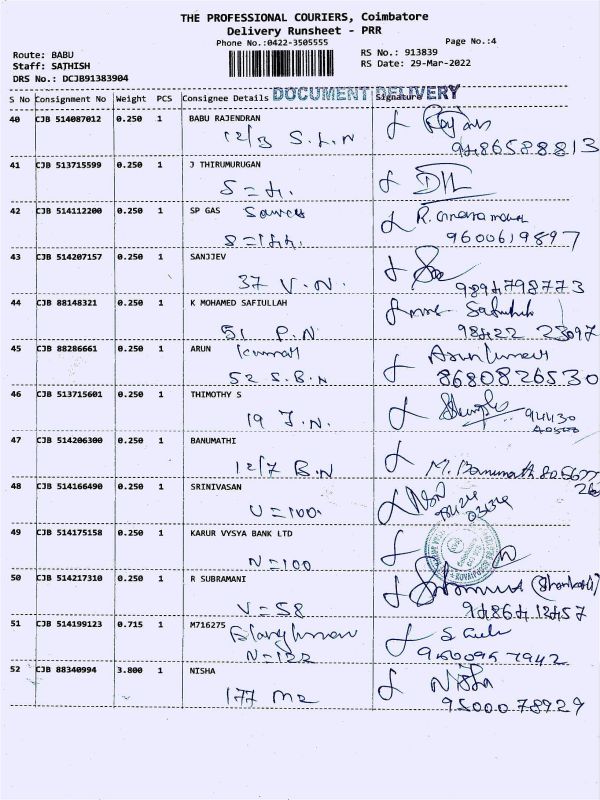 THE PROFESSIONAL COURIERS, Coimbatore
Delivery Runsheet - PRR
Phone No.:0422-3505555
Page No.:4
Route: BABU
RS No.: 913839
Staff: SATHISH
RS Date: 29-Mar-2022
DRS No.: DCJB91383904
DOCUMENT DELIVERY
S No Consignment No Weight PCS Consignee Details Signature
40 CJB 514087012 0.250 1 BABU RAJENDRAN
12/3 S.L.N
9486588813
41 CJB 513715599 0.250 1 J THIRUMURUGAN
42 CJB 514112200 0.250 1 SP GAS
9600619897
43 CJB 514207157 0.250 1 SANJJEV
37 V.N.
9894798773
44 CJB 88148321 0.250 1 K MOHAMED SAFIULLAH
51 P.N
98422 23097
45 CJB 88286661 0.250 1 ARUN
52 S.B.N
8680826530
46 CJB 513715601 0.250 1 THIMOTHY S
19 J.N.
94430
47 CJB 514206300 0.250 1 BANUMATHI
12/7 B.N
48 CJB 514166490 0.250 1 SRINIVASAN
U=100.
49 CJB 514175158 0.250 1 KARUR VYSYA BANK LTD
N=100
50 CJB 514217310 0.250 1 R SUBRAMANI
V=58
51 CJB 514199123 0.715 1 M716275
N=122
52 CJB 88340994 3.800 1 NISHA
Nisha
9500078929